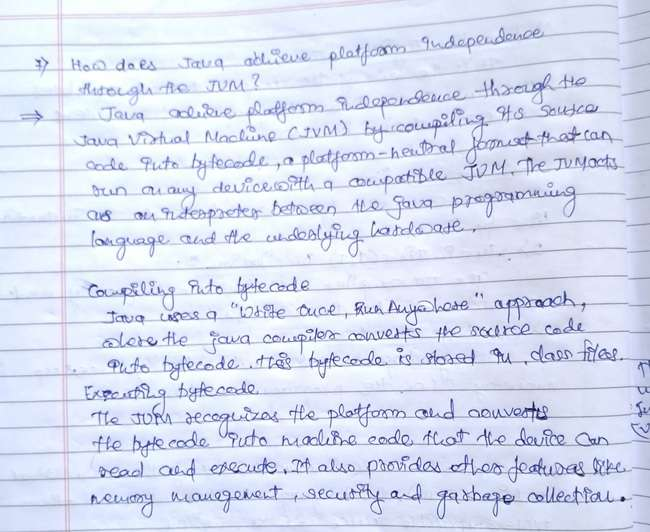 7) How does Java achieve platform independence
through the JVM?
⇒ Java achieve platform independence through the
Java Virtual Machine (JVM) by compiling its source
code into bytecode, a platform-neutral format that can
run on any device with a compatible JVM. The JVM acts
as an interpreter between the java programming
language and the underlying hardware.
Compiling into bytecode
Java uses a "Write once, Run Anywhere" approach,
where the java compiler converts the source code
into bytecode. this bytecode is stored in .class files.
Executing bytecode
The JVM recognizes the platform and converts
the bytecode into machine code that the device can
read and execute. It also provides other features like
memory management, security and garbage collection.